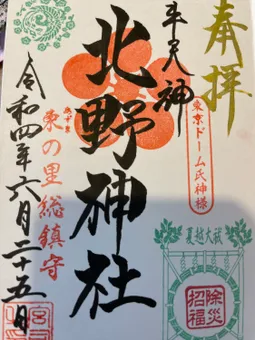 奉拝
牛天神
東京ドーム氏神様
北野神社
東の里総鎮守
令和四年六月二十五日
夏越大祓
除災
招福